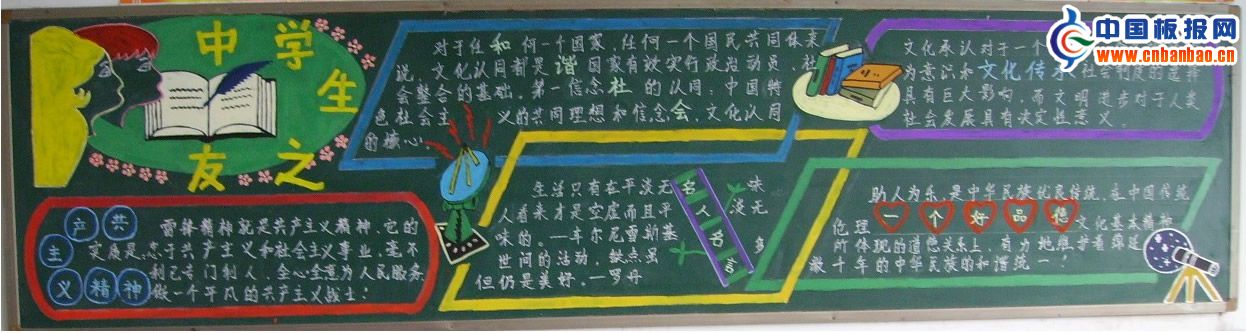 中国板报网
www.cnbanbao.cn
中学生
友之
对于任和何一个国家，任何一个国民共同体来
说，文化认同都是谐国家有效实行政治动员、社
会整合的基础，第一信念社的认同：中国特
色社会主义的共同理想和信念会，文化认同
的核心。
文化承认对于一个
为意识和文化传承社会制度的选择
具有巨大影响，而文明进步对于人类
社会发展具有决定性意义。
共产
主
义精神
雷锋精神就是共产主义精神，它的
实质是忠于共产主义和社会主义事业，毫不
利己专门利人，全心全意为人民服务
做一个平凡的共产主义战士！
名人名言
生活只有在平淡无味
人看来才是空虚而且平淡无
味的。—车尔尼雪斯基
世间的活动，缺点虽多
但仍是美好。—罗丹
助人为乐，是中华民族优良传统，在中国传统
伦理一个好品德文化基本精神
所体现的道德关系上，有力地维护着绵延
数千年的中华民族的和谐统一！